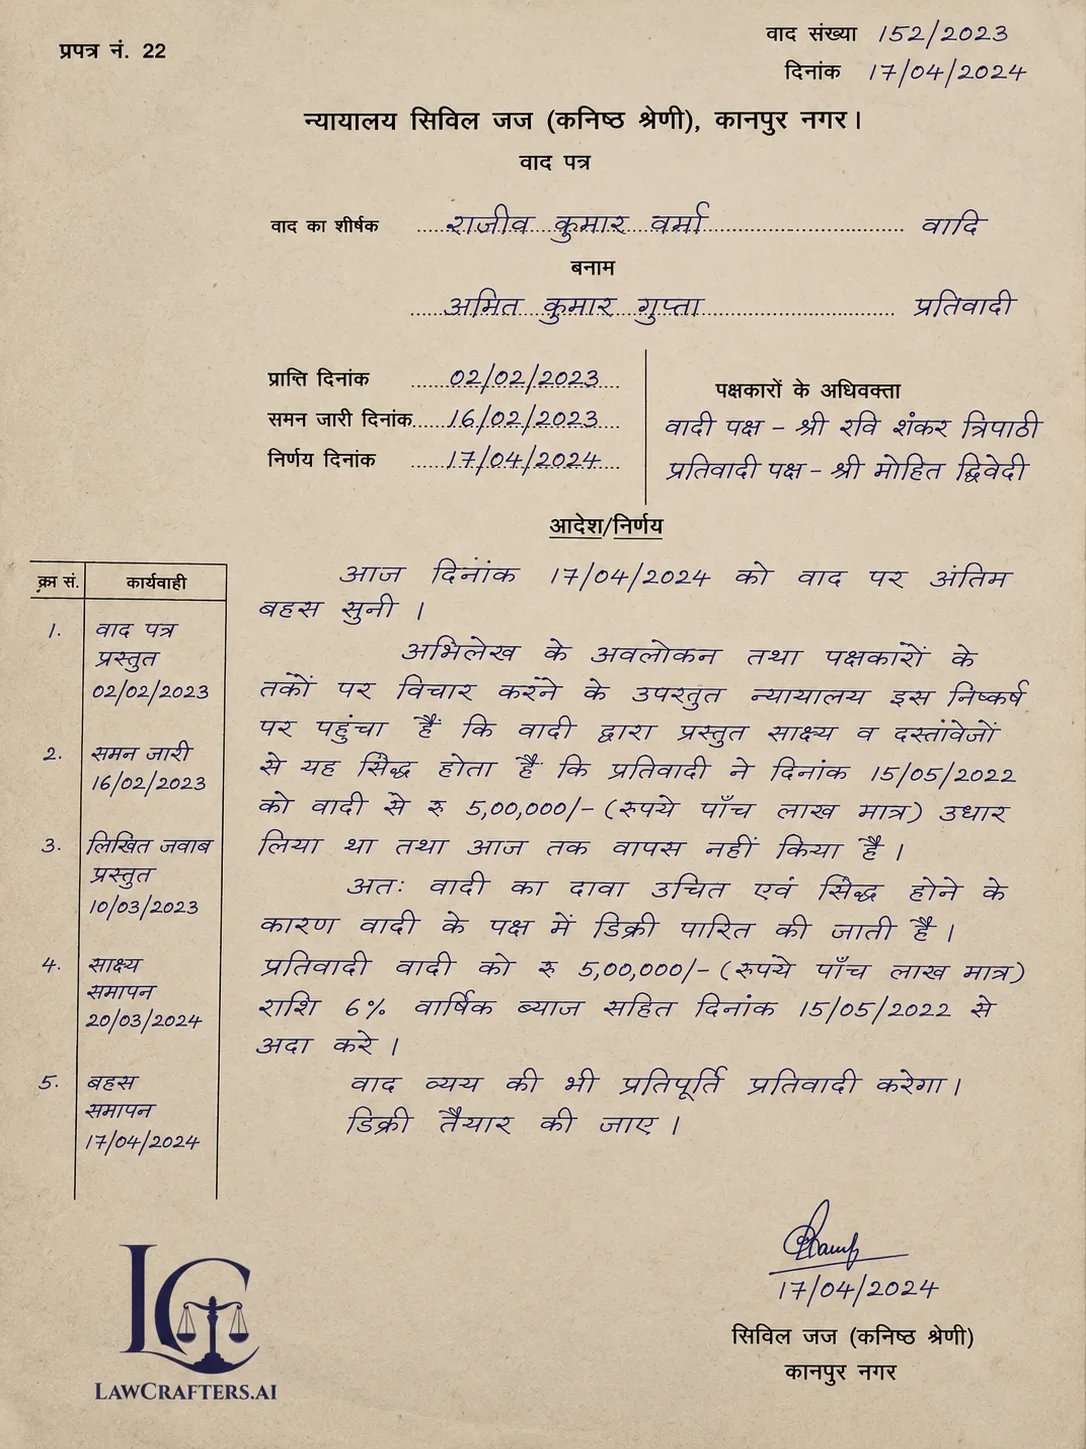 प्रपत्र नं. 22
वाद संख्या 152/2023
दिनांक 17/04/2024
न्यायालय सिविल जज (कनिष्ठ श्रेणी), कानपुर नगर।
वाद पत्र
वाद का शीर्षक राजीव कुमार वर्मा वादि
बनाम
अमित कुमार गुप्ता प्रतिवादी
प्राप्ति दिनांक 02/02/2023
समन जारी दिनांक 16/02/2023
निर्णय दिनांक 17/04/2024
पक्षकारों के अधिवक्ता
वादी पक्ष - श्री रवि शंकर त्रिपाठी
प्रतिवादी पक्ष - श्री मोहित द्विवेदी
आदेश/निर्णय
क्रम सं. कार्यवाही
1. वाद पत्र
प्रस्तुत
02/02/2023
2. समन जारी
16/02/2023
3. लिखित जवाब
प्रस्तुत
10/03/2023
4. साक्ष्य
समापन
20/03/2024
5. बहस
समापन
17/04/2024
आज दिनांक 17/04/2024 को वाद पर अंतिम
बहस सुनी ।
अभिलेख के अवलोकन तथा पक्षकारों के
तर्कों पर विचार करने के उपरतुत न्यायालय इस निष्कर्ष
पर पहुंचा हैं कि वादी द्वारा प्रस्तुत साक्ष्य व दस्तांवेजों
से यह सिद्ध होता हैं कि प्रतिवादी ने दिनांक 15/05/2022
को वादी से रु 5,00,000/- (रुपये पाँच लाख मात्र) उधार
लिया था तथा आज तक वापस नहीं किया है ।
अतः वादी का दावा उचित एवं सिद्ध होने के
कारण वादी के पक्ष में डिक्री पारित की जाती है ।
प्रतिवादी वादी को रु 5,00,000/- (रुपये पाँच लाख मात्र)
राशि 6% वार्षिक ब्याज सहित दिनांक 15/05/2022 से
अदा करे ।
वाद व्यय की भी प्रतिपूर्ति प्रतिवादी करेगा।
डिक्री तैयार की जाए ।
17/04/2024
सिविल जज (कनिष्ठ श्रेणी)
कानपुर नगर
LC
LAWCRAFTERS.AI